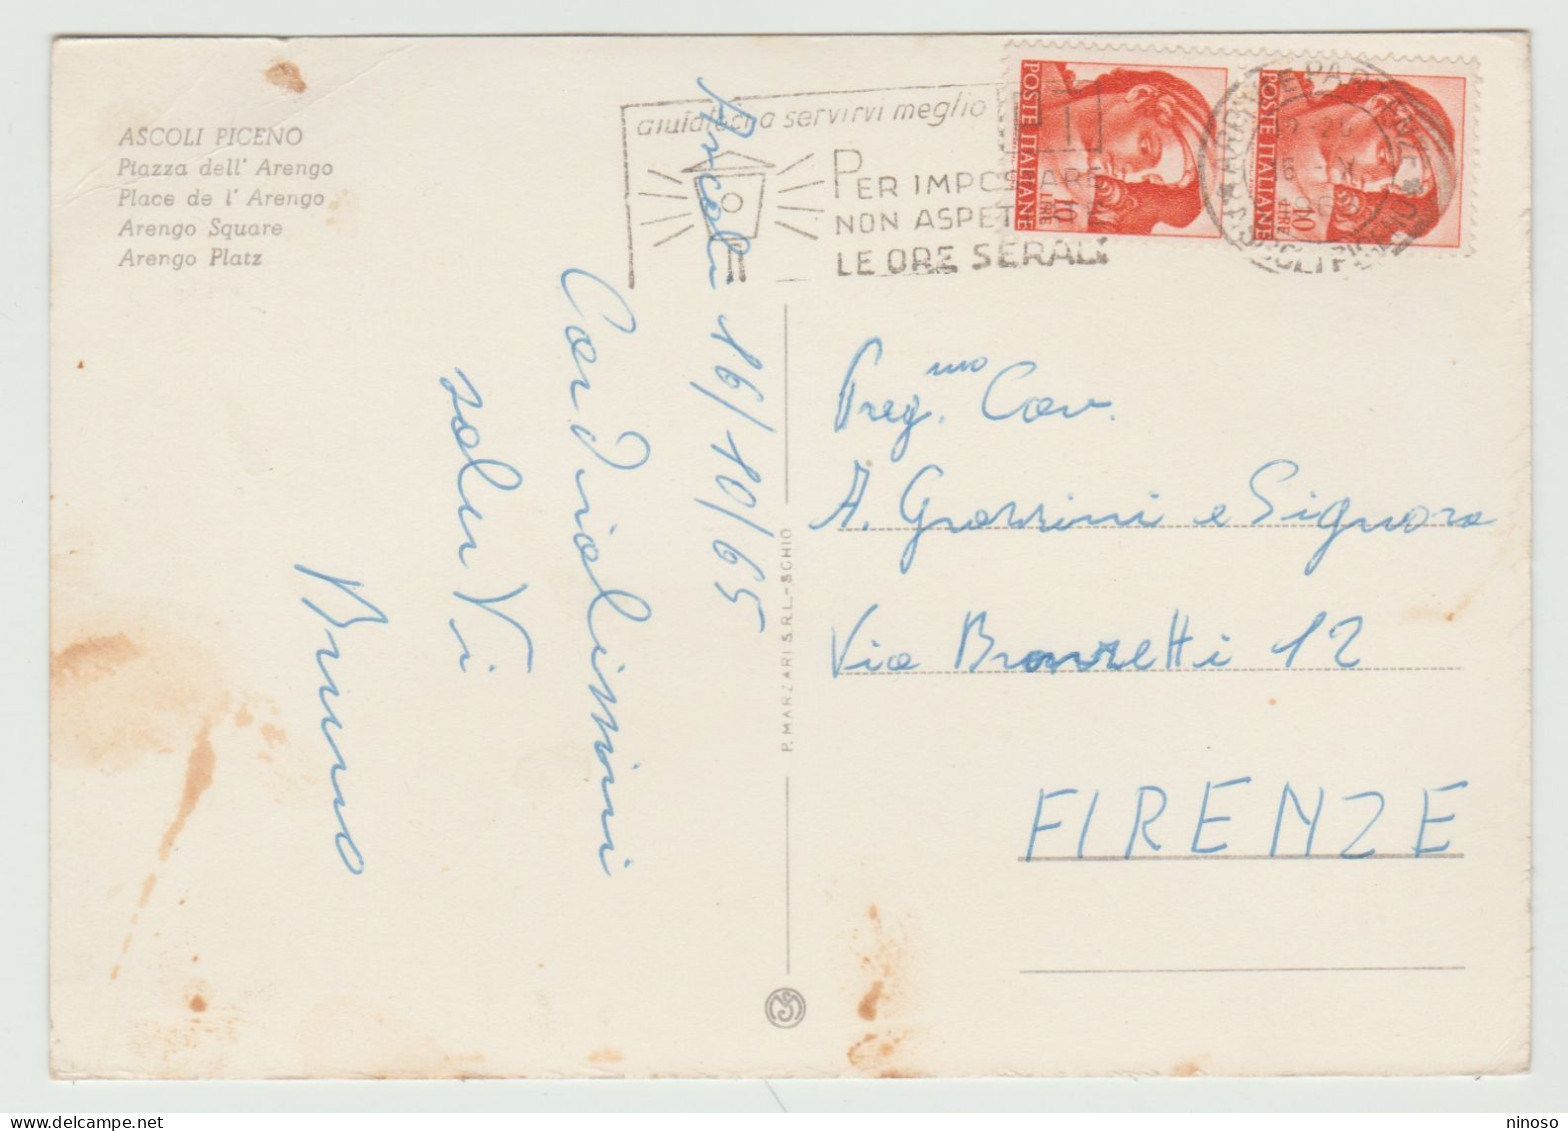 ASCOLI PICENO
Piazza dell' Arengo
Place de l' Arengo
Arengo Square
Arengo Platz
aiutateci a servirvi meglio
PER IMPOSTARE
NON ASPETTATE
LE ORE SERALI
POSTE ITALIANE
10 LIRE
POSTE ITALIANE
10 LIRE
ARRIVI E PARTENZE
ASCOLI PICENO
Ascoli 16/10/65
Cordialissimi
saluti
Bruno
Preg.mo Cav.
A. Grazzini e Signora
Via Bronzetti 12
FIRENZE
P. MARZARI S.R.L.-SCHIO
ninoso